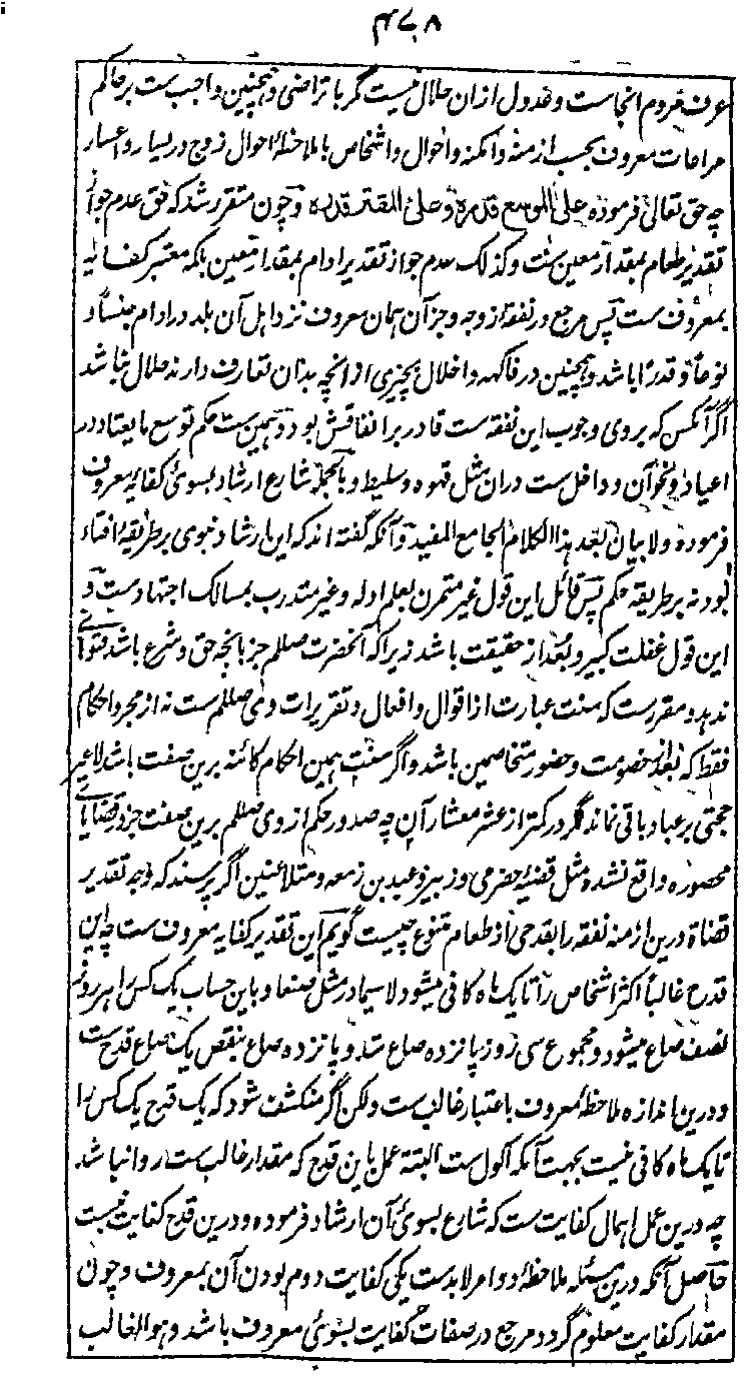 ۴۷۸
عرف مردم انجاست وعدول ازان حلال نیست گر با تراضی وہمچنین واجب ست بر حاکم
مراعات معروف بحسب ازمنه وامکنه واحوال واشخاص با ملاحظهٔ احوال زوج در یسار واعسار
چه حق تعالی فرموده علی الموسع قدره وعلی المقتر قدره وچون متقرر شد که حق عدم جواز
تقدیر طعام بمقدار معین ست وکذلک عدم جواز تقدیر ادام بمقدار معین بلکه معتبر کفایه
بمعروف ست پس مرجع در نفقهٔ زوجه وجز آن همان معروف نزد اهل آن بلد در ادام جنسا و
نوعا وقدرا باشد وہمچنین در فاکهه واخلال بچیزی از انچه بدان تعارف دارند حلال نباشد
اگر آنکس که بروی وجوب این نفقه ست قادر بر انفاقش بود وہمین ست حکم توسع ما یعتاد در
اعیاد ونحو آن وداخل ست دران مثل قهوه وسلیط وبالجمله شارع ارشاد بسوی کفایه معروف
فرموده ولا بیان بعد هذا الکلام الجامع المفید وآنکه گفته اند که این ارشاد نبوی بر طریقهٔ افتاء
بود نه بر طریقه حکم پس قائل این قول غیر متمرن بعلم ادله وغیر متدرب بمسالک اجتهاد ست و
این قول غفلت کبیر وبعد از حقیقت باشد زیرا که آنحضرت صللم جز بانچه حق وشرع باشد فتوای
ندهد ومقرر ست که سنت عبارت از اقوال وافعال وتقریرات وی صللم ست نه از مجرد احکام
فقط که بعد از خصومت وحضور متخاصمین باشد واگر سنت ہمین احکام کائنه برین صفت باشد لاغیر
حجتی بر عباد باقی نماند گر در کمتر از عشر معشار آن چه صدور حکم از وی صللم برین صفت جز در قضایای
محصوره واقع نشده مثل قضیهٔ حضرمی وزبیر وعبد بن زمعه ومتلاعنین اگر پرسند که وجه تقدیر
قضاة درین ازمنه نفقه را بقدحی از طعام متنوع چیست گویم این تقدیر کفایه معروف ست چه این
قدح غالبا اکثر اشخاص را تا یک ماه کافی میشود لاسیما در مثل صنعا وباین حساب یک کس را هر روز
نصف صاع میشود ومجموع سی روز پانزده صاع شد وپانزده صاع بنقص یک صاع قدح ست
ودرین اندازه ملاحظهٔ معروف باعتبار غالب ست ولکن اگر منکشف شود که یک قدح یک کس را
تا یک ماه کافی نیست بجهت آنکه اکول ست البتة عمل باین قدح که مقدار غالب ست روا نباشد
چه درین عمل اهمال کفایت ست که شارع بسوی آن ارشاد فرموده ودرین قدح کفایت نیست
حاصل آنکه درین مسئله ملاحظهٔ دو امر لابد ست یکی کفایت دوم بودن آن بمعروف وچون
مقدار کفایت معلوم گردد مرجع در صفات کفایت بسوی معروف باشد وهو الغالب